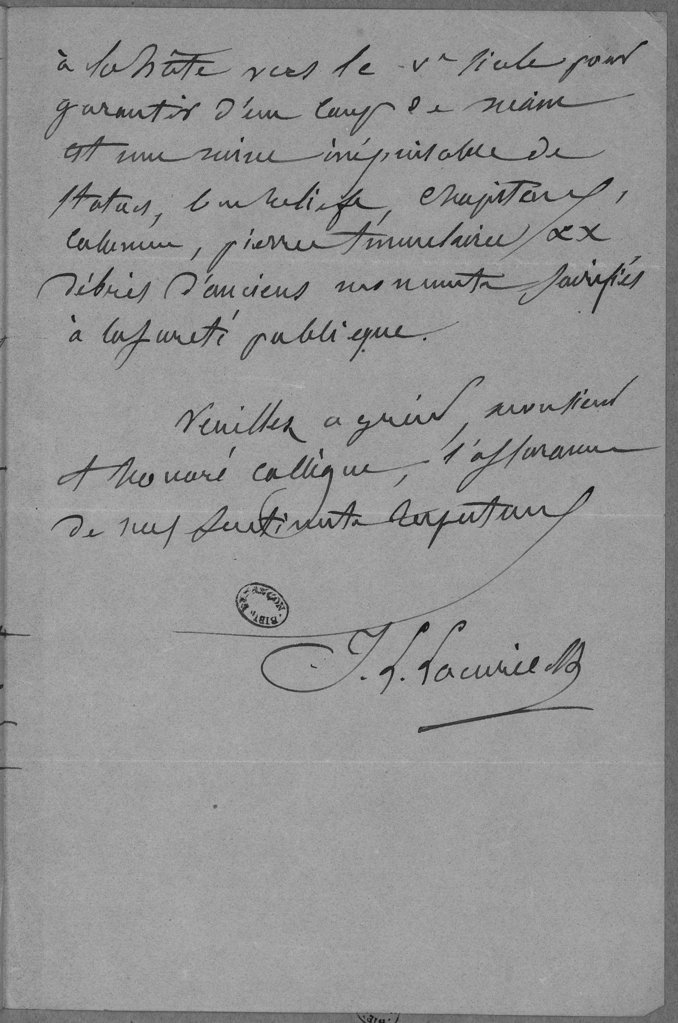 à la hâte vers le Ve siècle pour
garantir d'un coup de main
est une mine inépuisable de
statues, bas reliefs, chapiteaux,
colonnes, pierres tumulaires &x
débris d'anciens monuments sacrifiés
à la sureté publique.
Veuillez agréer, monsieur
et honoré collègue, l'assurance
de mes sentiments respectueux
BIBL. DE BESANÇON
J. L. Lacurie